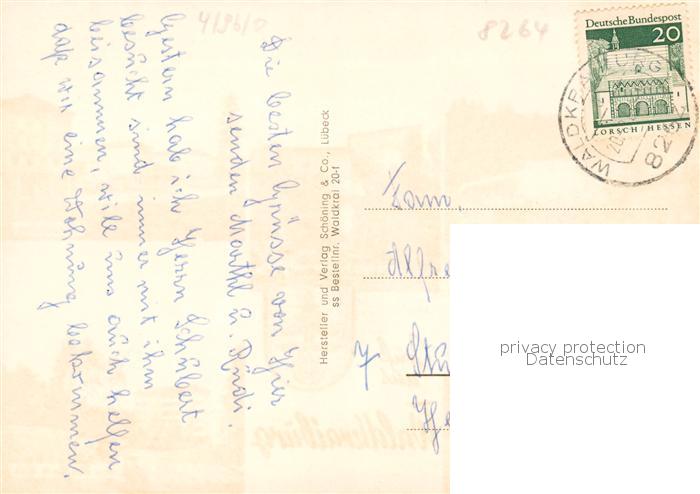 4/96/0
8264
Deutsche Bundespost
20
LORSCH/HESSEN
WALDKRAIBURG
Die besten Grüsse von Hier
senden Marthl u. Rudi.
Gestern hab ich Herrn Schubert
besucht sind immer mit ihm
beisammen, will uns auch helfen
daß wir eine Wohnung bekommen.
Hersteller und Verlag Schöning & Co., Lübeck
ss Bestellnr. Waldkrai 20-f
Fam.
Alfre
7 Stu
He
privacy protection
Datenschutz
Waldkraiburg